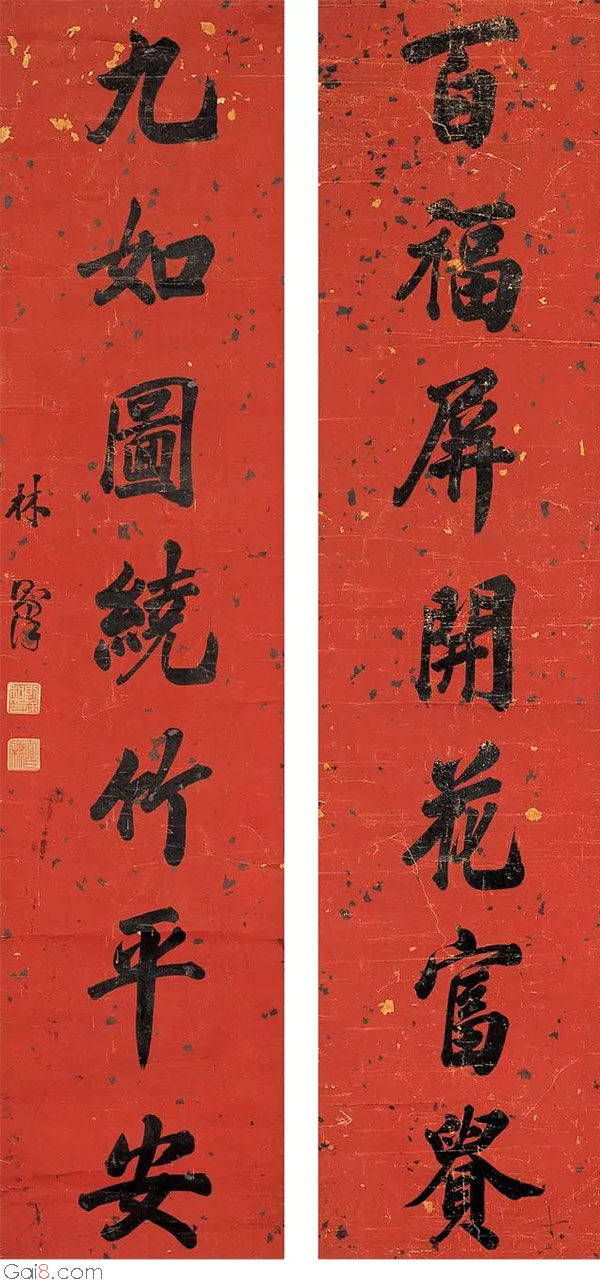 百福屏開花富貴
九如圖繞竹平安
林則徐
Gai8.com